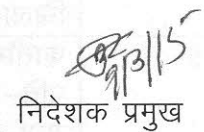 9/3/15
निदेशक प्रमुख